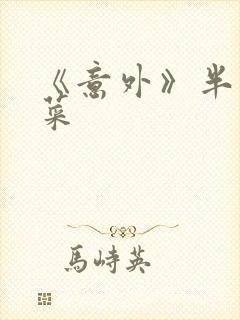 《意外》半
菜
馬峙英